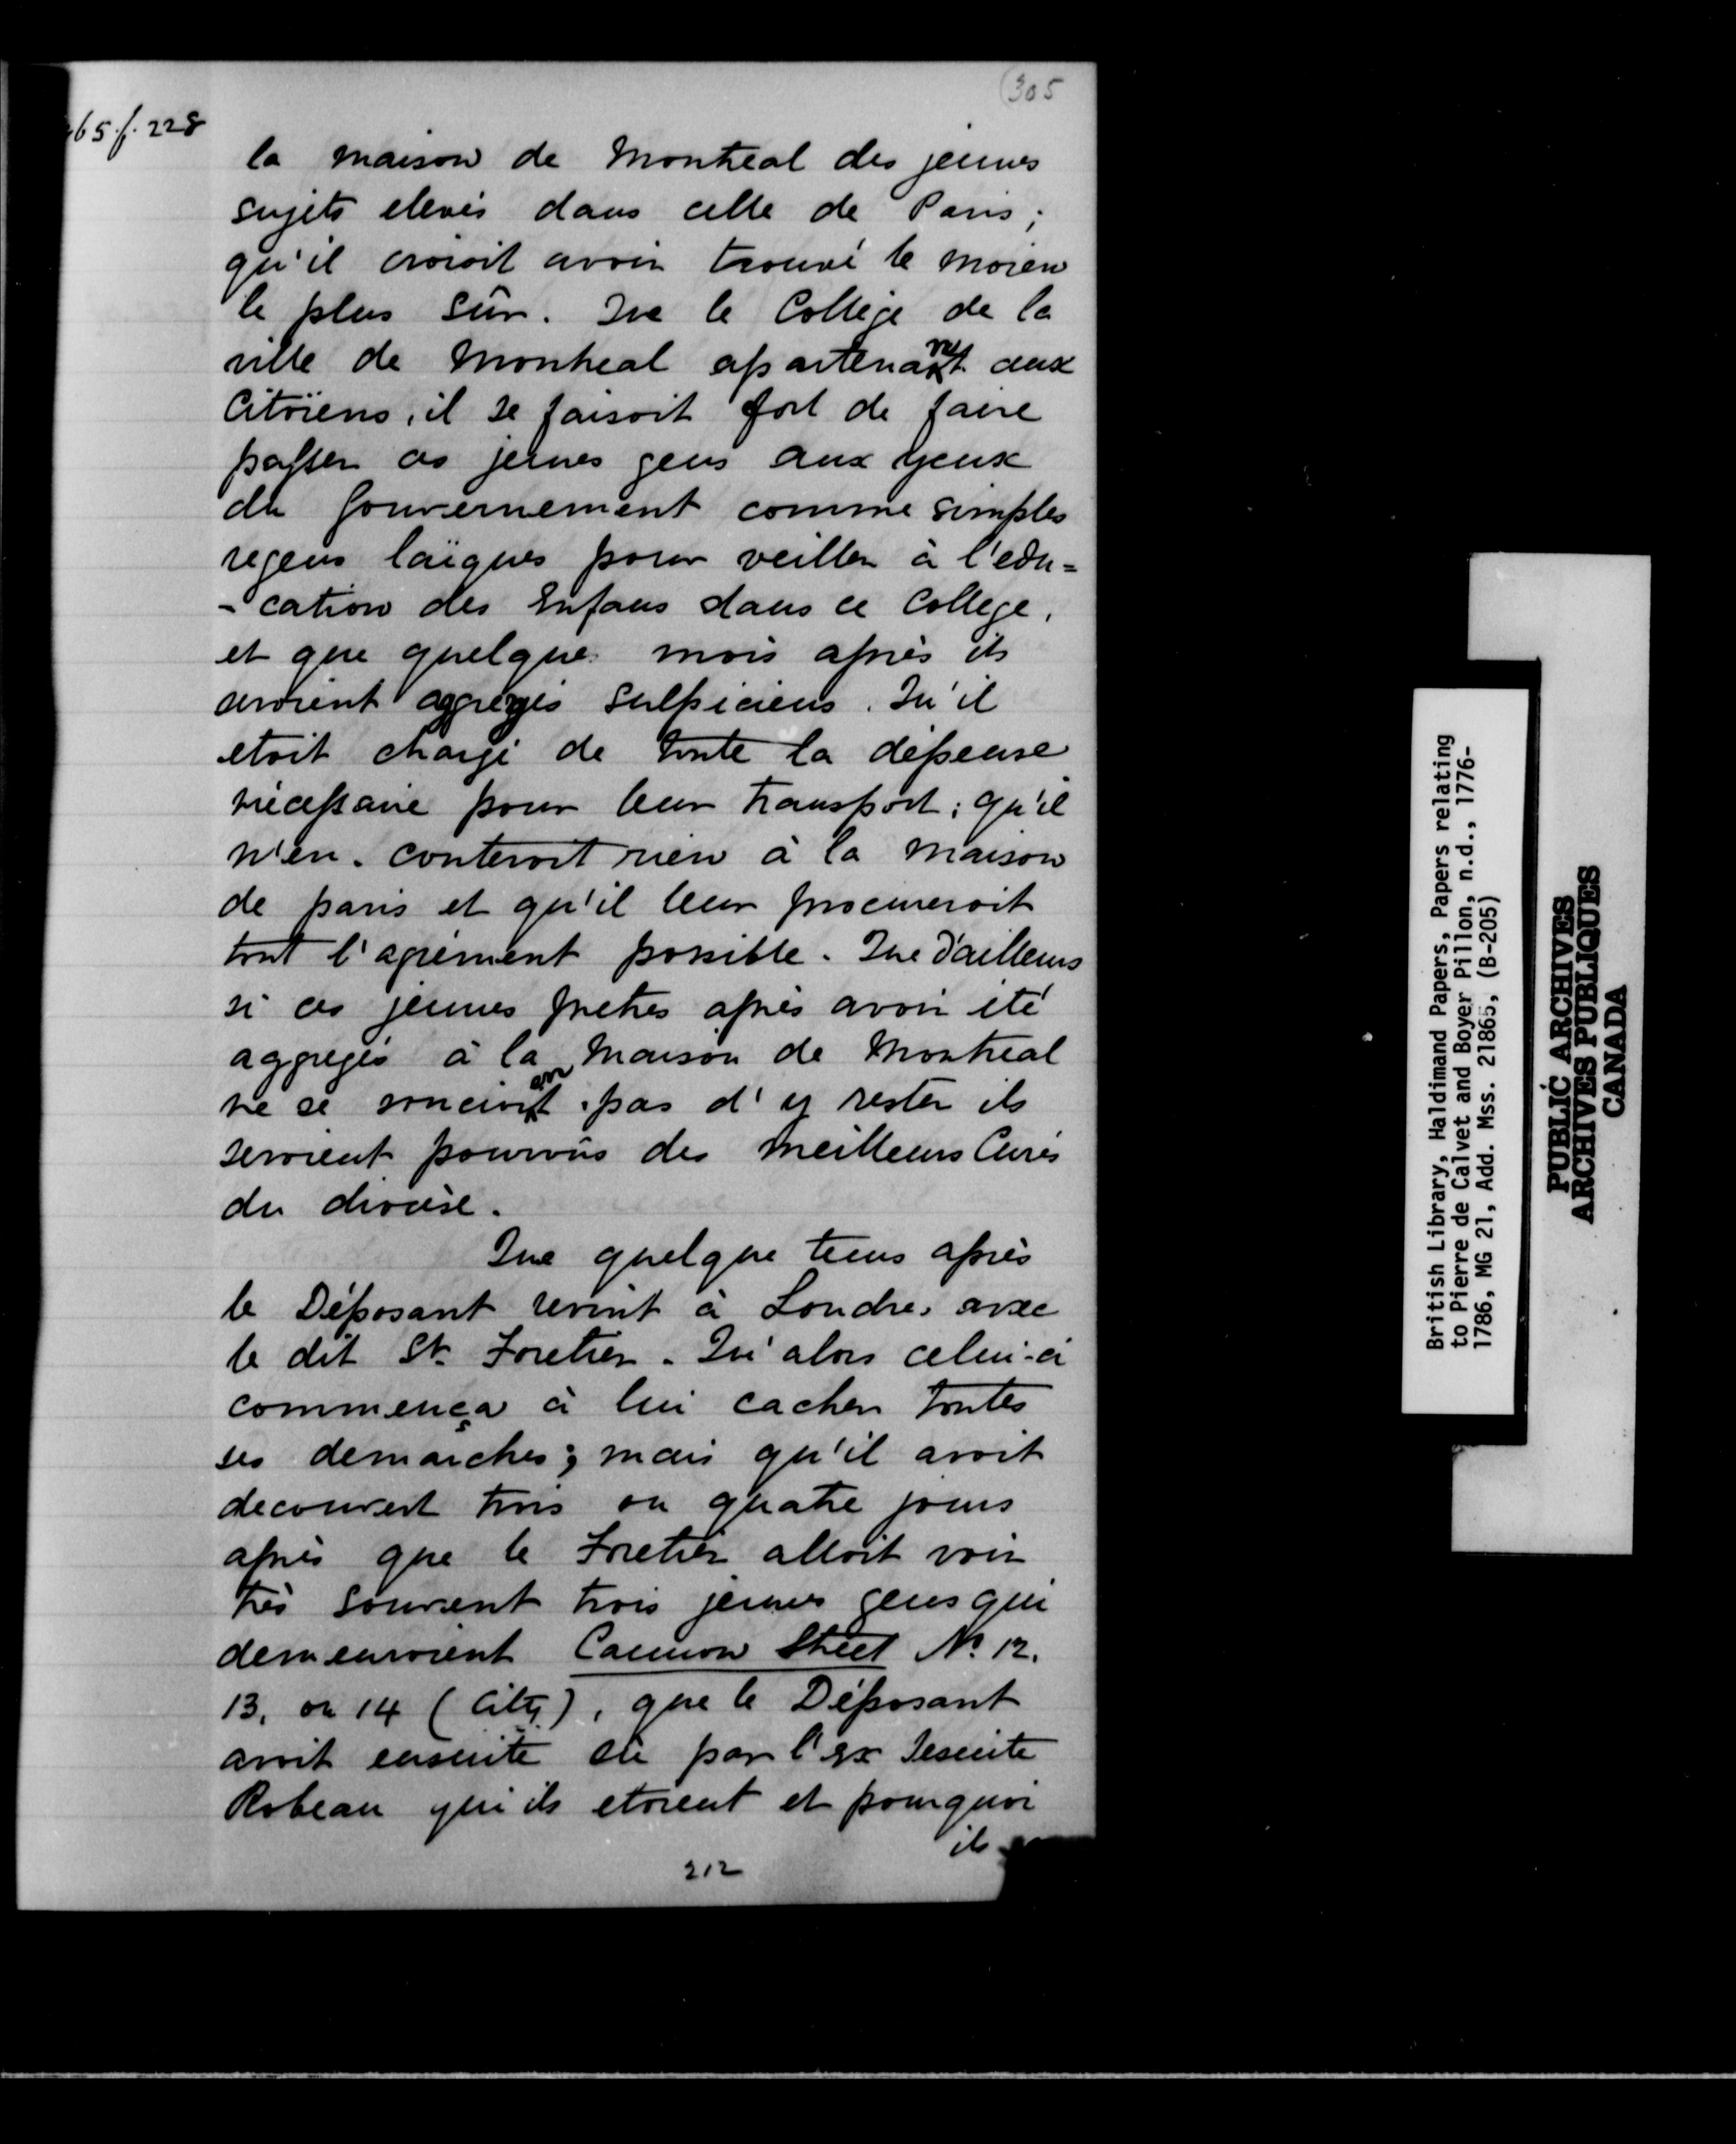 (305
65.f.228
la maison de Montreal des jeunes
sujets elevés dans celle de Paris;
qu'il croioit avoir trouvé le moien
le plus sûr. Que le College de la
ville de Montreal apartenant aux
Citoïens, il se faisoit fort de faire
passer ces jeunes gens aux yeux
du Gouvernement comme simples
regens laïques pour veiller à l'edu=
-cation des Enfans dans ce College,
et que quelque mois après ils
seroient aggregés Sulpiciens. Qu'il
etoit chargé de toute la dépense
nécessaire pour leur transport; qu'il
n'en couteroit rien à la maison
de paris et qu'il leur procureroit
tout l'agrément possible. Que d'ailleurs
si ces jeunes pretres après avoir été
aggregés à la Maison de Montreal
ne se soucioient pas d'y rester ils
seroient pourvûs des meilleurs Cures
du diocèse.
Que quelque tems après
le Déposant revint à Londres avec
le dit Sr. Foretier. Qu'alors celui-ci
commença à lui cacher toutes
ses demarches; mais qu'il avoit
decouvert trois ou quatre jours
après que le Foretier alloit voir
très souvent trois jeunes gens qui
demeuroient Cannon Street No. 12.
13. ou 14 (City), que le Déposant
avoit ensuite sû par l'ex Jesuite
Robeau qui ils etoient et pourquoi
ils
212
British Library, Haldimand Papers, Papers relating
to Pierre de Calvet and Boyer Pillon, n.d., 1776-
1786, MG 21, Add. Mss. 21865, (B-205)
PUBLIC ARCHIVES
ARCHIVES PUBLIQUES
CANADA